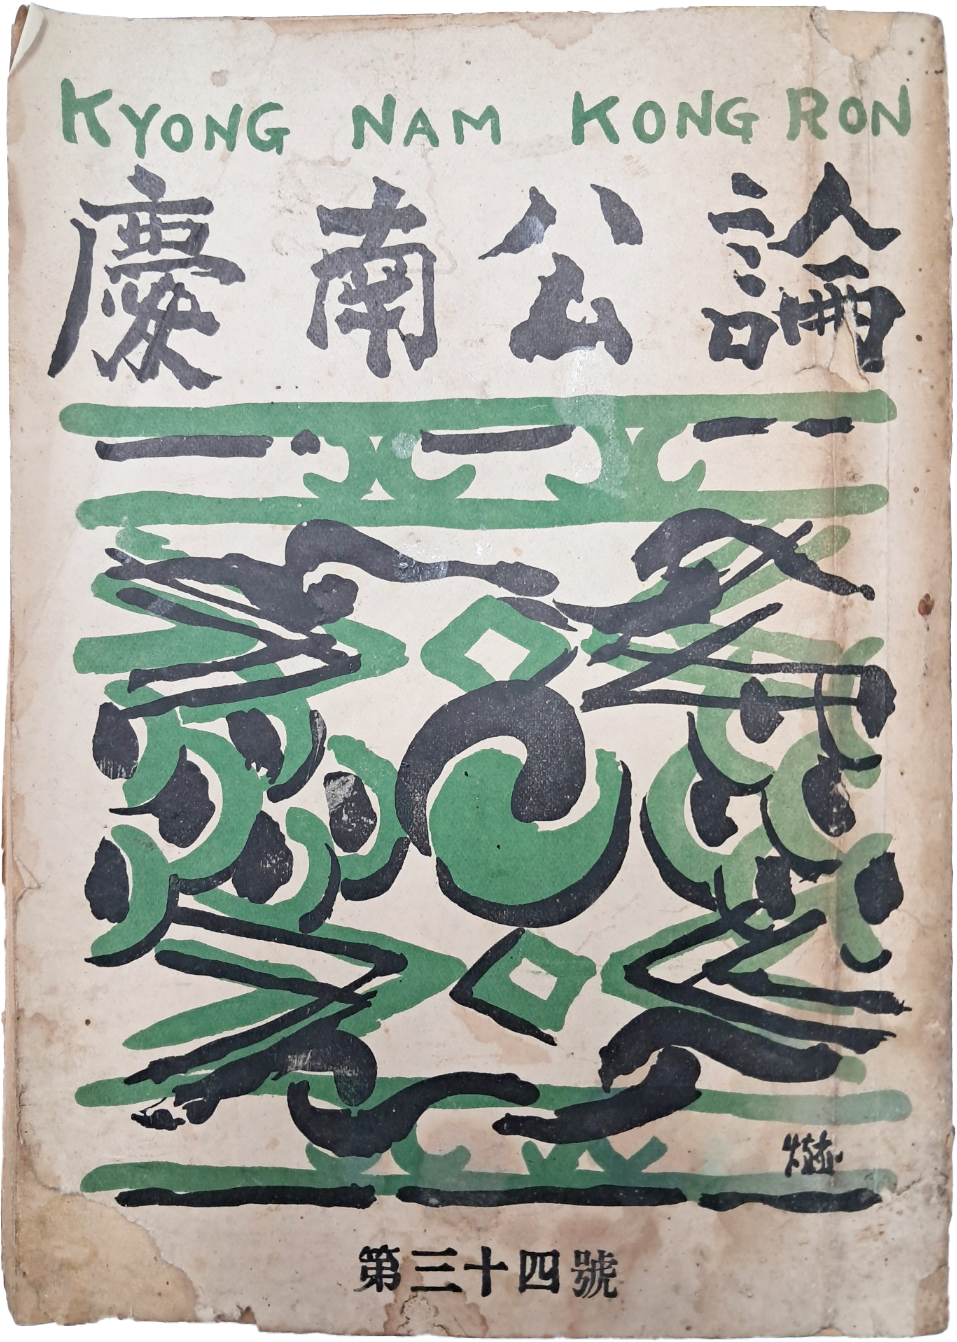 KYONG NAM KONG RON
慶南公論
第三十四號